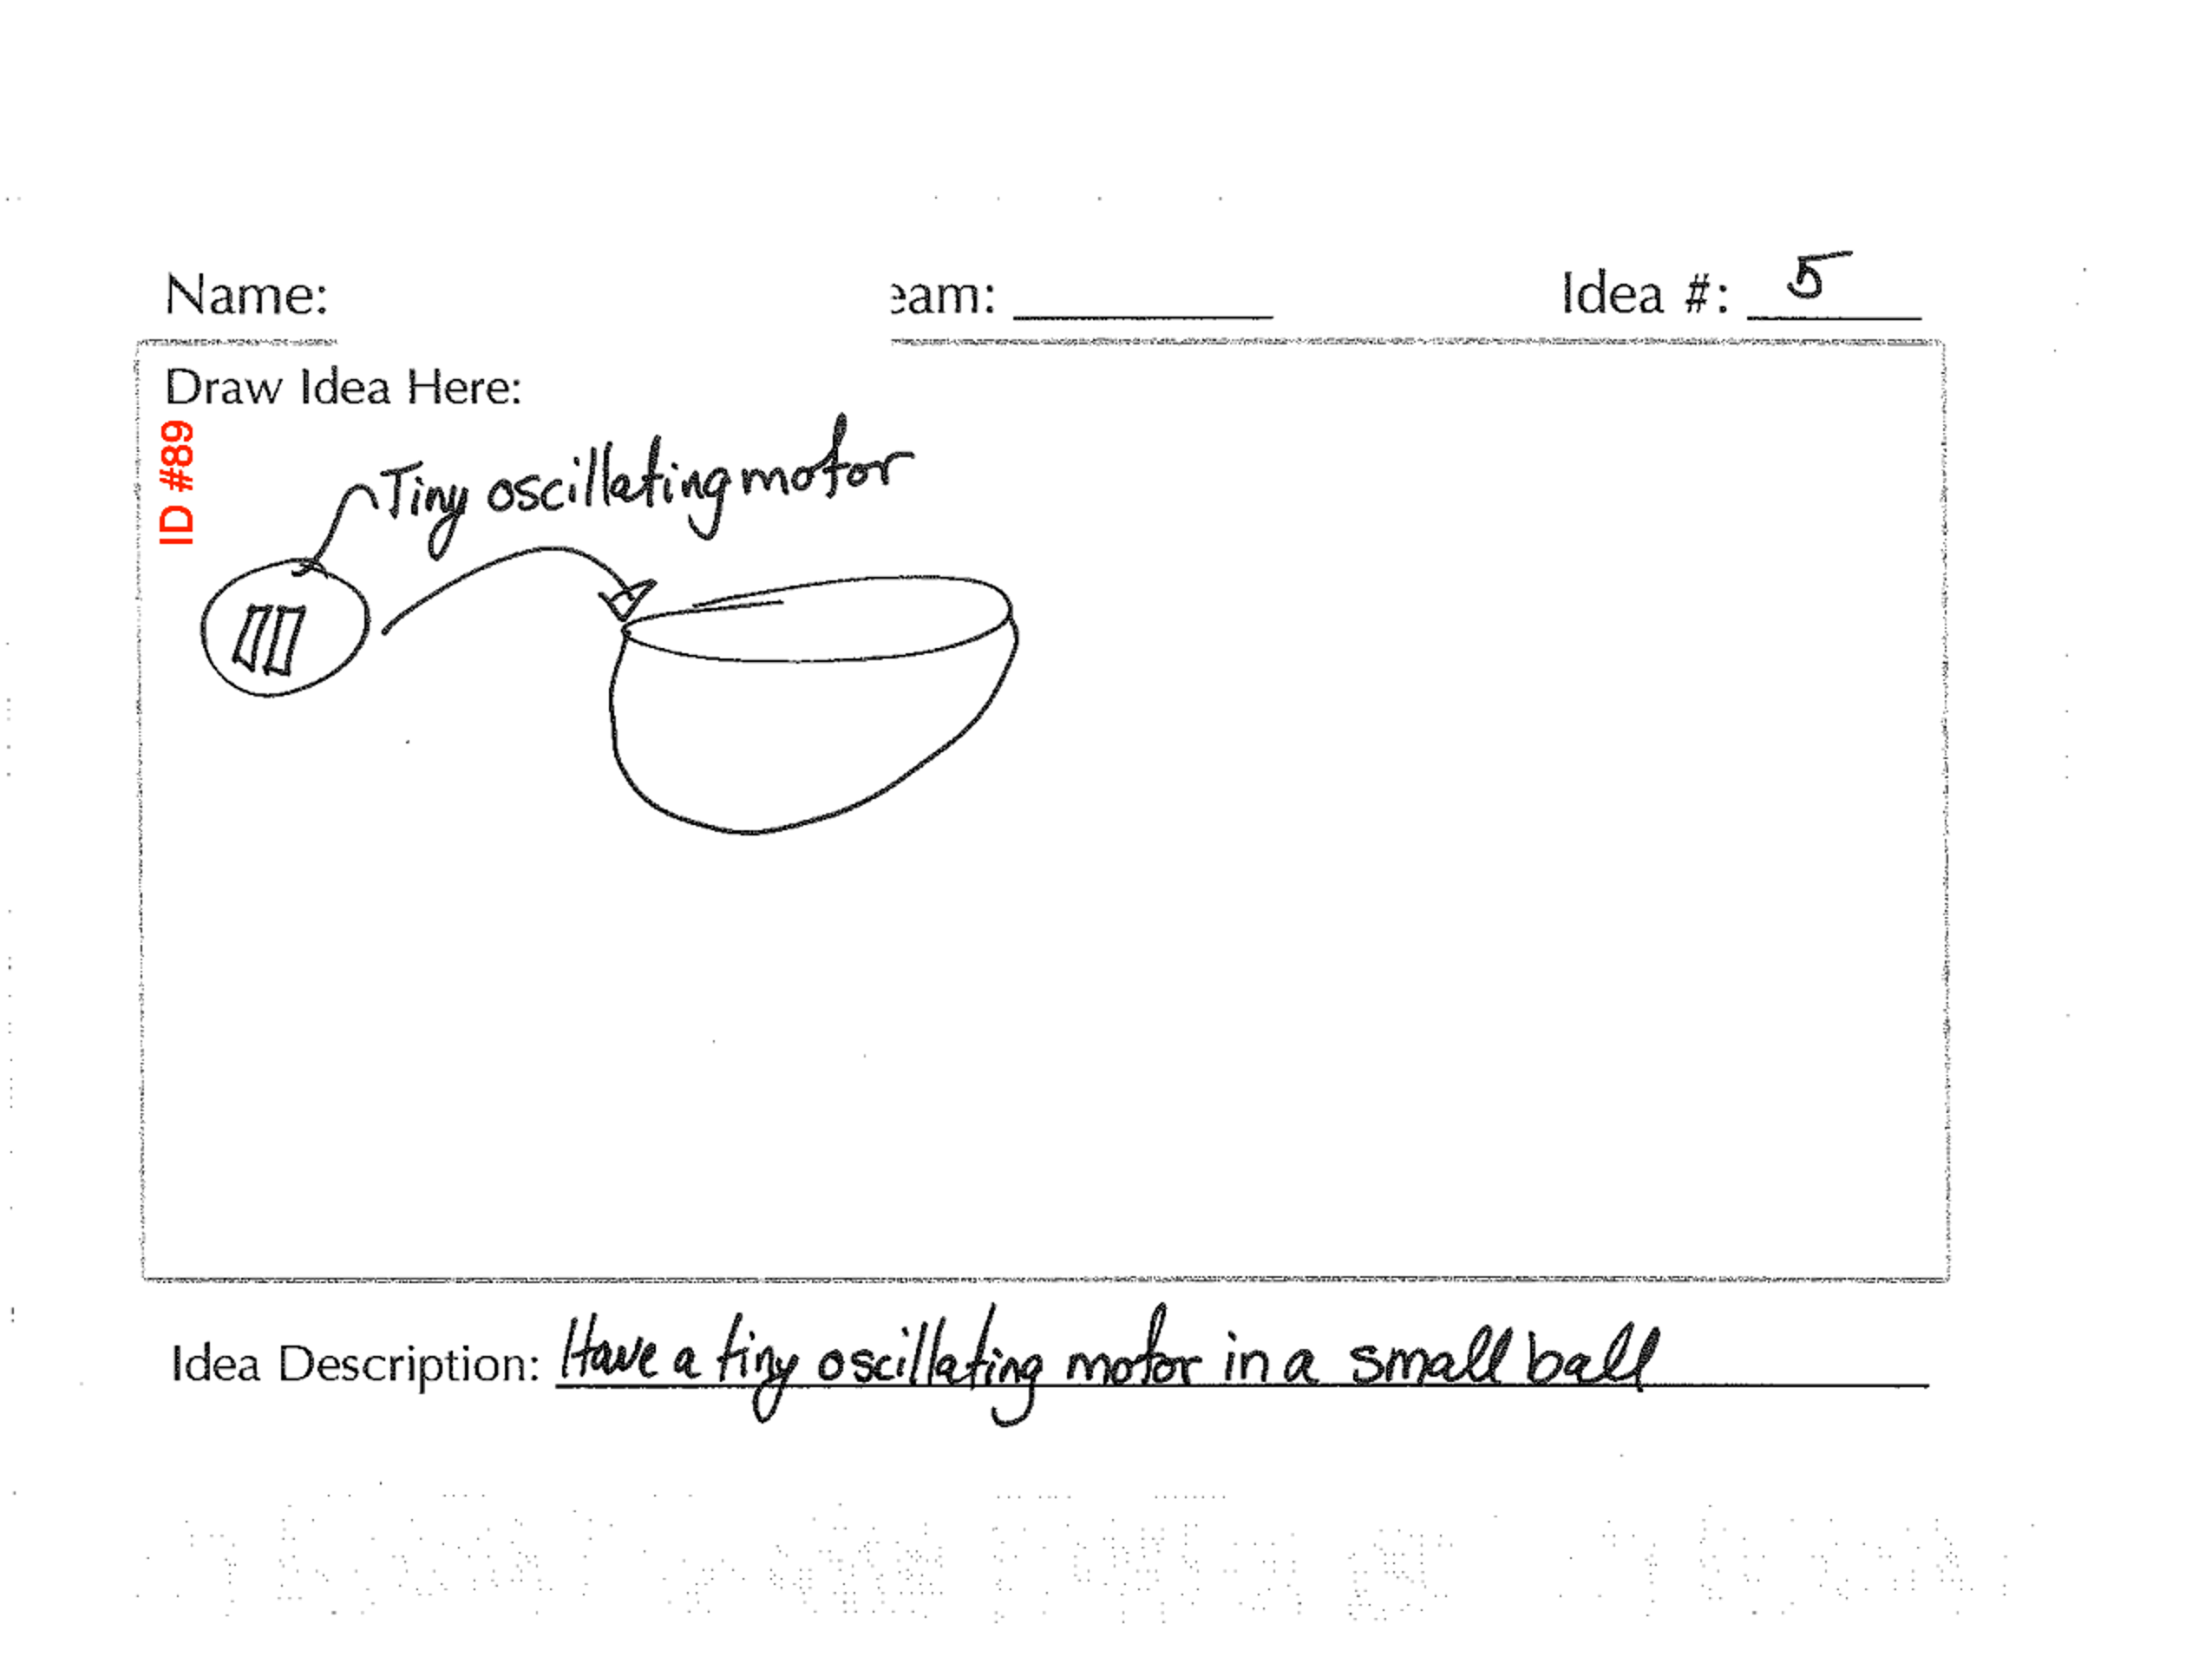 Name: eam: Idea #: 5
Draw Idea Here:
ID #89
Tiny oscillating motor
Idea Description: Have a tiny oscillating motor in a small ball